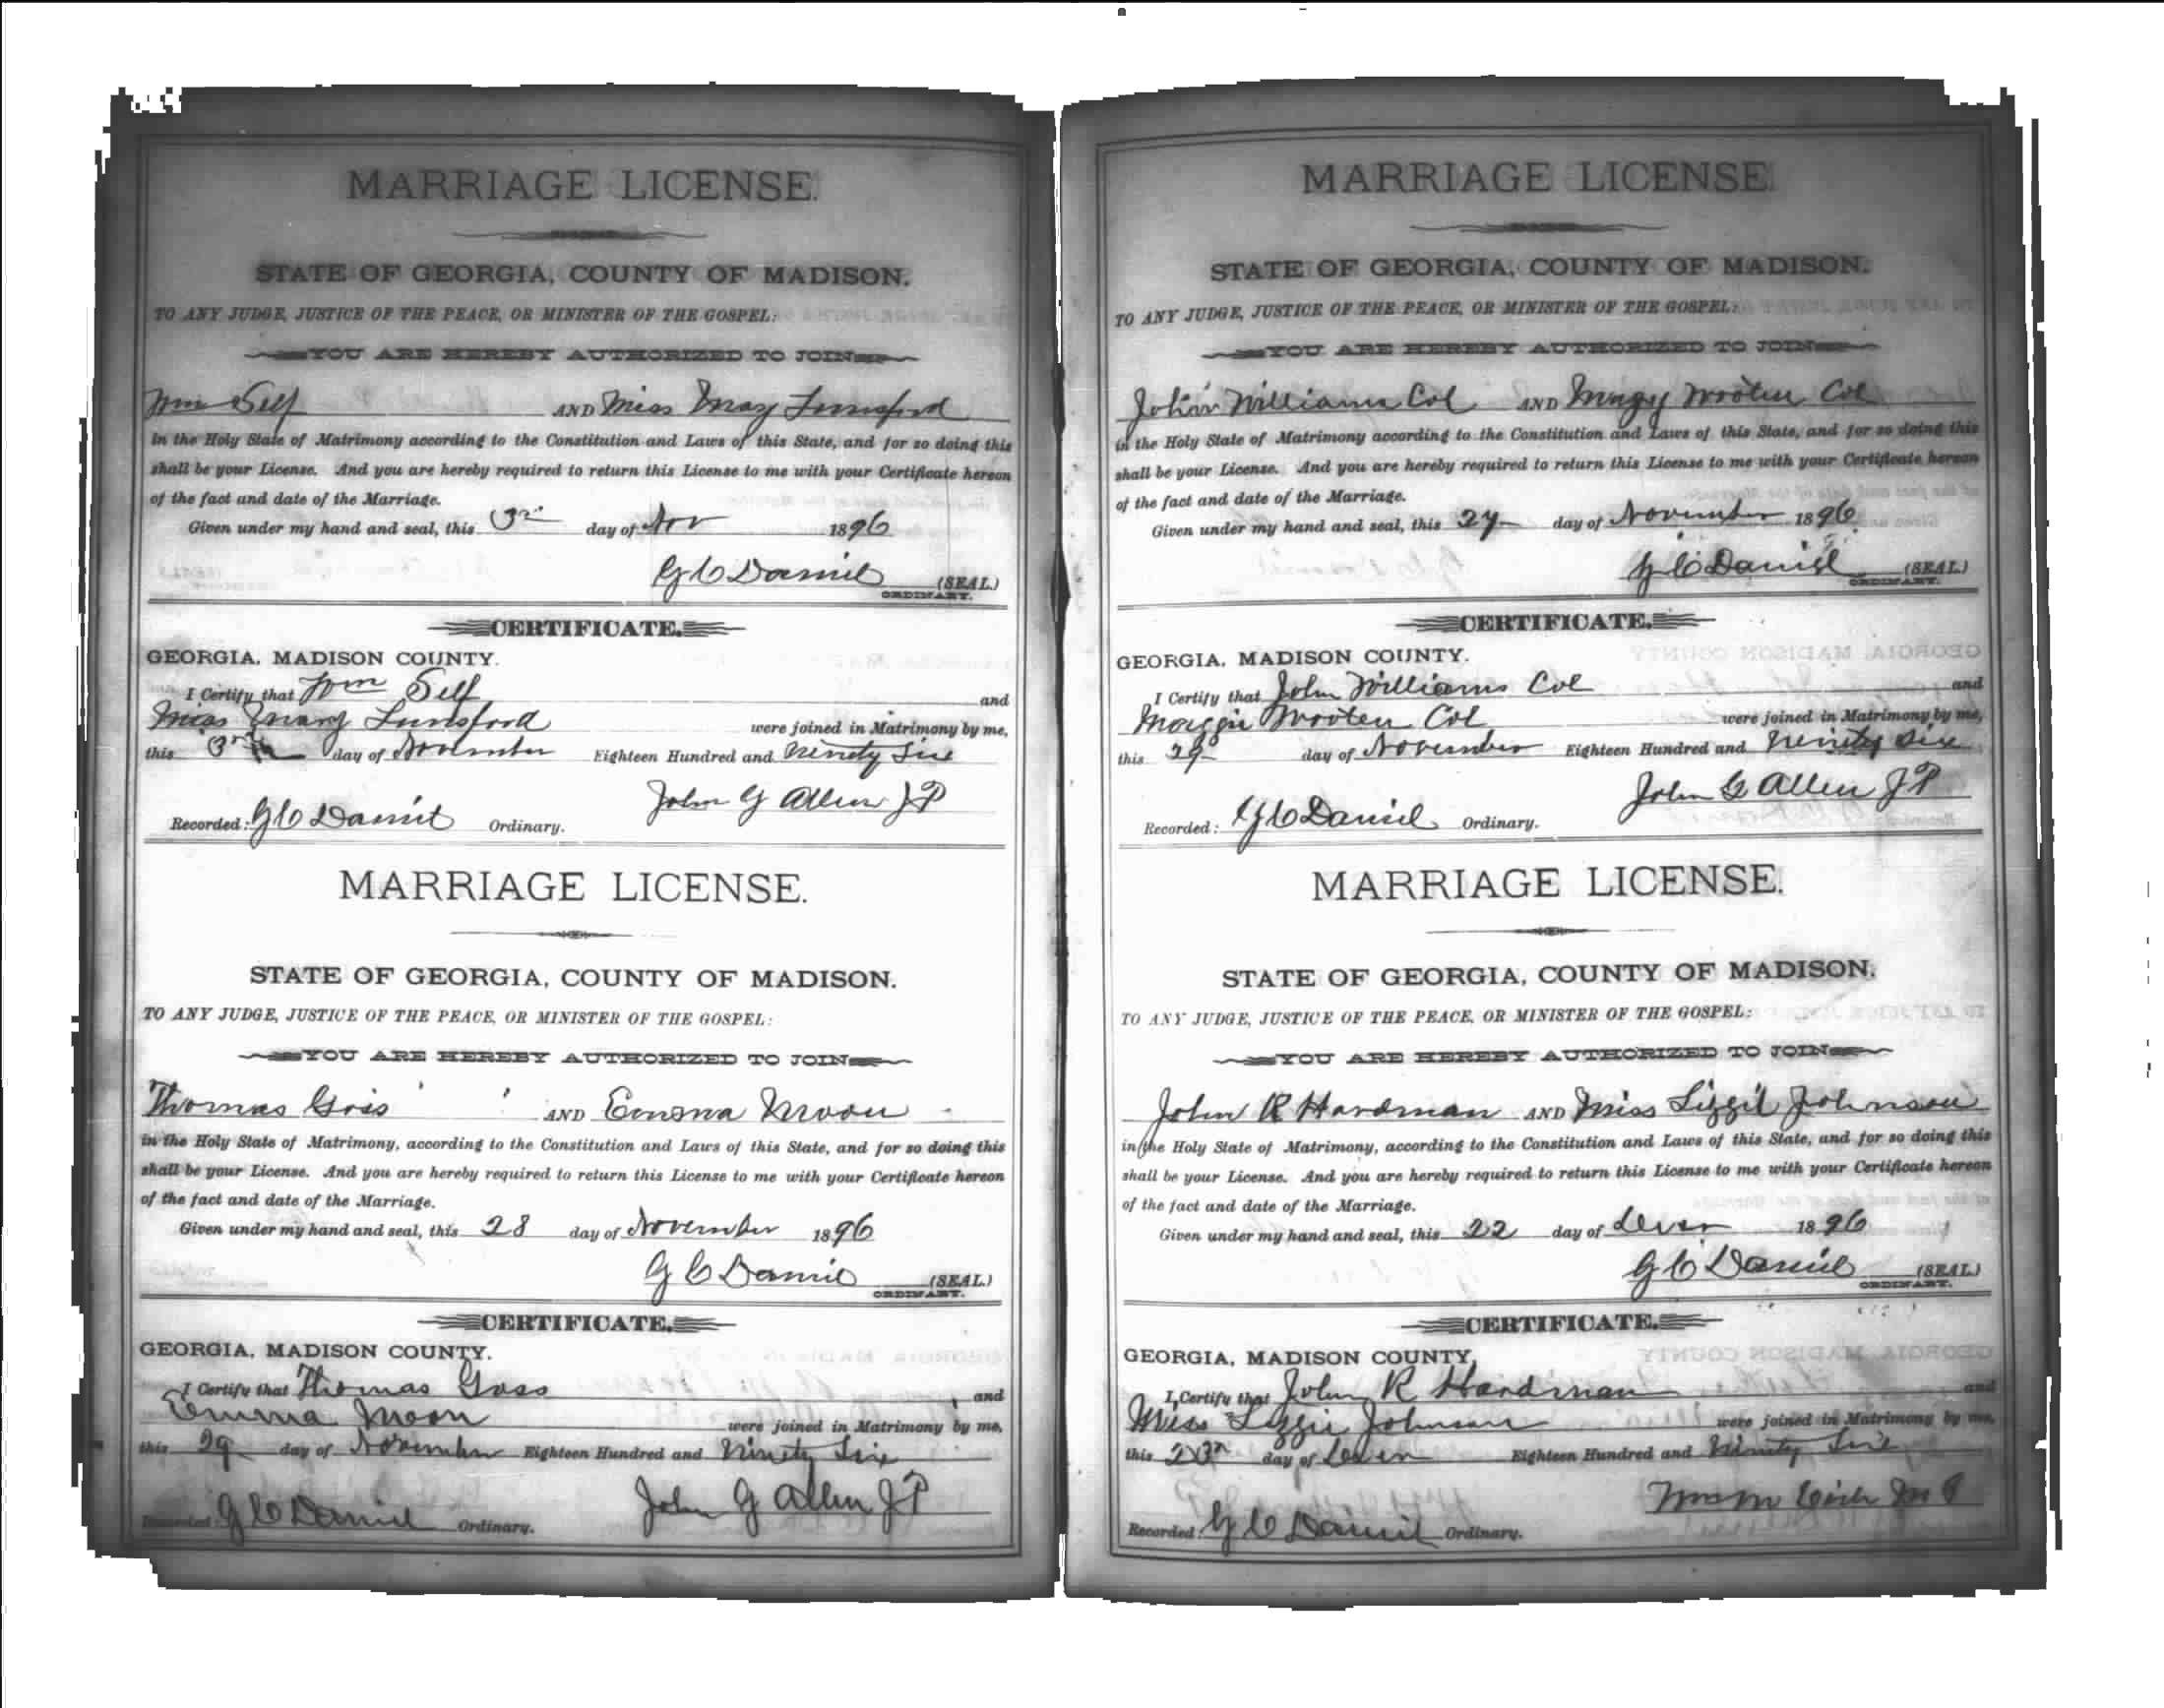 MARRIAGE LICENSE.
STATE OF GEORGIA, COUNTY OF MADISON.
TO ANY JUDGE, JUSTICE OF THE PEACE, OR MINISTER OF THE GOSPEL:
YOU ARE HEREBY AUTHORIZED TO JOIN
Wm Self AND Miss May Lunsford
in the Holy State of Matrimony according to the Constitution and Laws of this State, and for so doing this
shall be your License. And you are hereby required to return this License to me with your Certificate hereon
of the fact and date of the Marriage.
Given under my hand and seal, this 3rd day of Nov 1896
G C Daniel (SEAL)
ORDINARY.
CERTIFICATE.
GEORGIA, MADISON COUNTY.
I Certify that Wm Self and
Miss Mary Lunsford were joined in Matrimony by me,
this 3rd day of November Eighteen Hundred and Ninety Six
John G Allen JP
Recorded: G C Daniel Ordinary.
MARRIAGE LICENSE.
STATE OF GEORGIA, COUNTY OF MADISON.
TO ANY JUDGE, JUSTICE OF THE PEACE, OR MINISTER OF THE GOSPEL:
YOU ARE HEREBY AUTHORIZED TO JOIN
Thomas Goss AND Emma Moon
in the Holy State of Matrimony, according to the Constitution and Laws of this State, and for so doing this
shall be your License. And you are hereby required to return this License to me with your Certificate hereon
of the fact and date of the Marriage.
Given under my hand and seal, this 28 day of November 1896
G C Daniel (SEAL)
ORDINARY.
CERTIFICATE.
GEORGIA, MADISON COUNTY.
I Certify that Thomas Goss and
Emma Moon were joined in Matrimony by me,
this 29 day of November Eighteen Hundred and Ninety Six
John G Allen JP
Recorded: G C Daniel Ordinary.
MARRIAGE LICENSE.
STATE OF GEORGIA, COUNTY OF MADISON.
TO ANY JUDGE, JUSTICE OF THE PEACE, OR MINISTER OF THE GOSPEL:
YOU ARE HEREBY AUTHORIZED TO JOIN
John Williams Col AND Wooten Col
in the Holy State of Matrimony according to the Constitution and Laws of this State, and for so doing this
shall be your License. And you are hereby required to return this License to me with your Certificate hereon
of the fact and date of the Marriage.
Given under my hand and seal, this 27 day of November 1896
G C Daniel (SEAL)
ORDINARY.
CERTIFICATE.
GEORGIA, MADISON COUNTY.
I Certify that John Williams Col and
Maggie Wooten Col were joined in Matrimony by me,
this 29 day of November Eighteen Hundred and Ninety Six
John G Allen JP
Recorded: G C Daniel Ordinary.
MARRIAGE LICENSE.
STATE OF GEORGIA, COUNTY OF MADISON.
TO ANY JUDGE, JUSTICE OF THE PEACE, OR MINISTER OF THE GOSPEL:
YOU ARE HEREBY AUTHORIZED TO JOIN
John R Hardman AND Miss Lizzie Johnson
in the Holy State of Matrimony, according to the Constitution and Laws of this State, and for so doing this
shall be your License. And you are hereby required to return this License to me with your Certificate hereon
of the fact and date of the Marriage.
Given under my hand and seal, this 22 day of 1896
G C Daniel (SEAL)
ORDINARY.
CERTIFICATE.
GEORGIA, MADISON COUNTY,
I Certify that John R Hardman and
Miss Lizzie Johnson were joined in Matrimony by me,
this day of Eighteen Hundred and Ninety Six
Recorded: G C Daniel Ordinary.